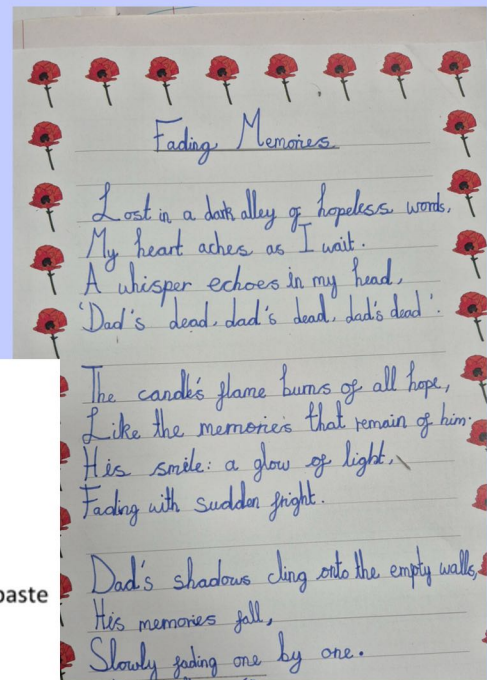 Fading Memories
Lost in a dark alley of hopeless words,
My heart aches as I wait.
A whisper echoes in my head,
'Dad's dead, dad's dead, dad's dead'.
The candle's flame burns of all hope,
Like the memories that remain of him.
His smile: a glow of light,
Fading with sudden fright.
Dad's shadows cling onto the empty walls,
His memories fall,
Slowly fading one by one.
paste